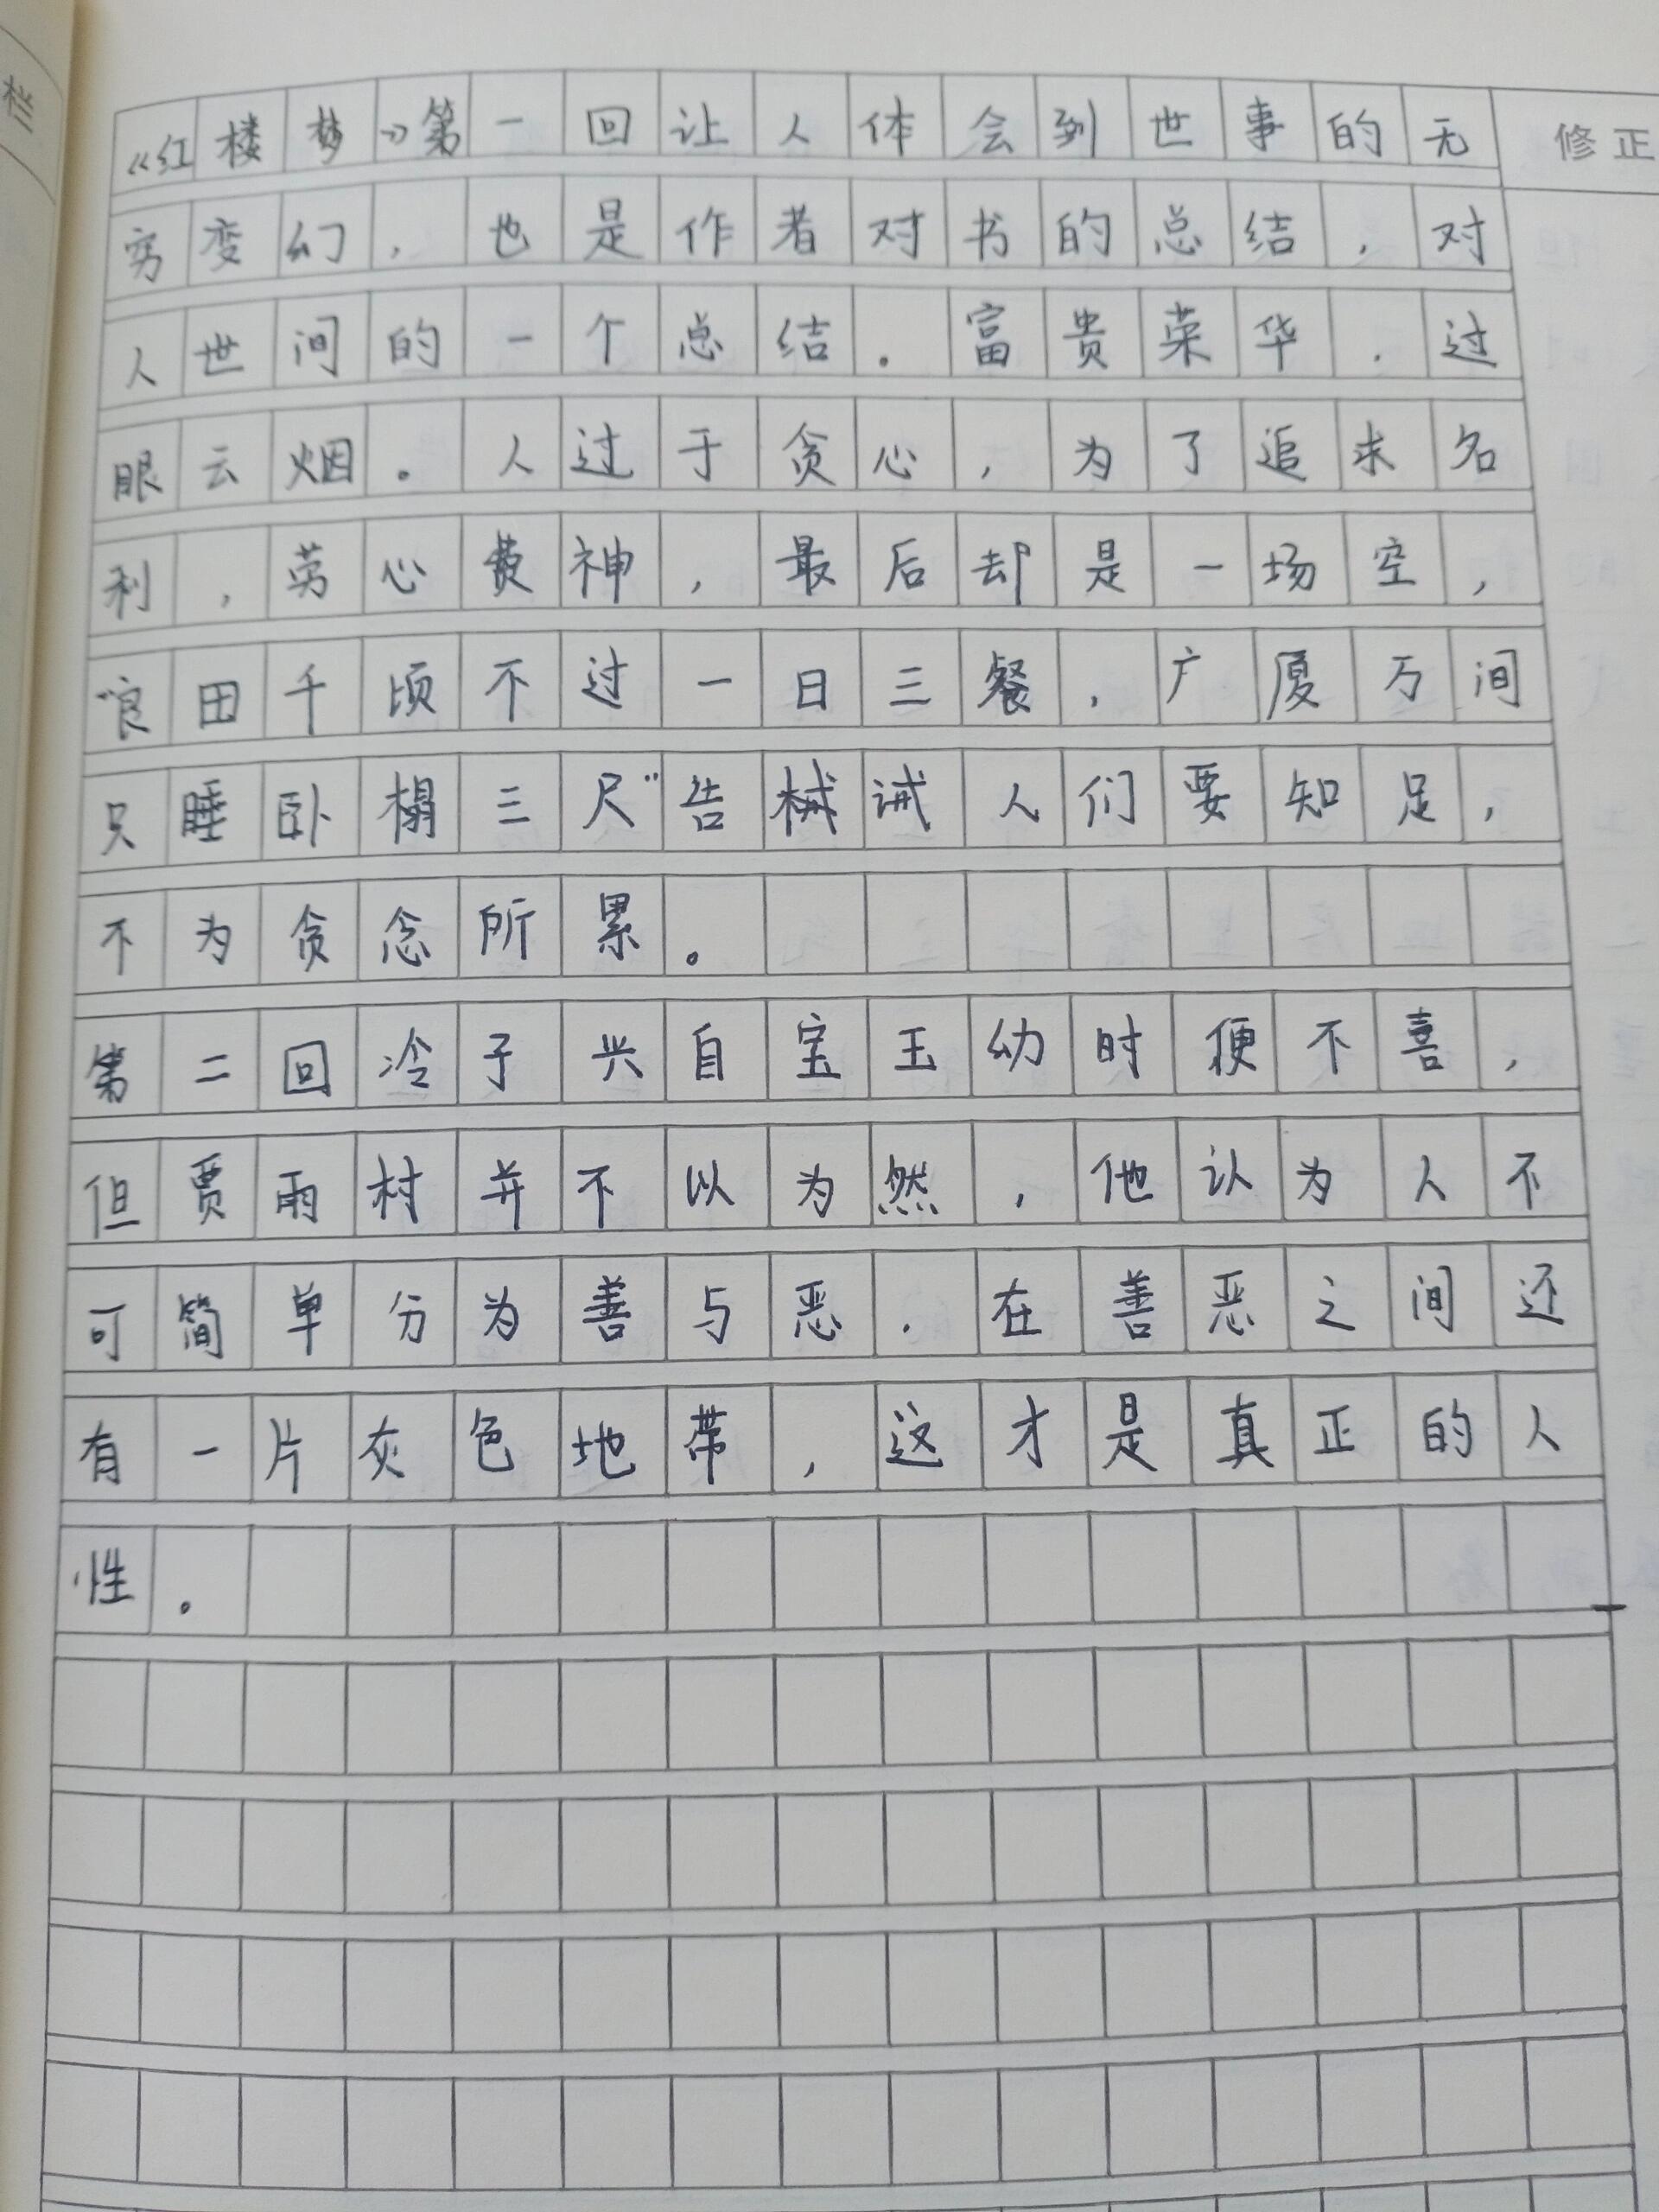 栏
修正
《红楼梦》第一回让人体会到世事的无
穷变幻，也是作者对书的总结，对
人世间的一个总结。富贵荣华，过
眼云烟。人过于贪心，为了追求名
利，劳心费神，最后却是一场空，
“良田千顷不过一日三餐，广厦万间
只睡卧榻三尺”告诫人们要知足，
不为贪念所累。
第二回冷子兴自宝玉幼时便不喜，
但贾雨村并不以为然，他认为人不
可简单分为善与恶．在善恶之间还
有一片灰色地带，这才是真正的人
性。